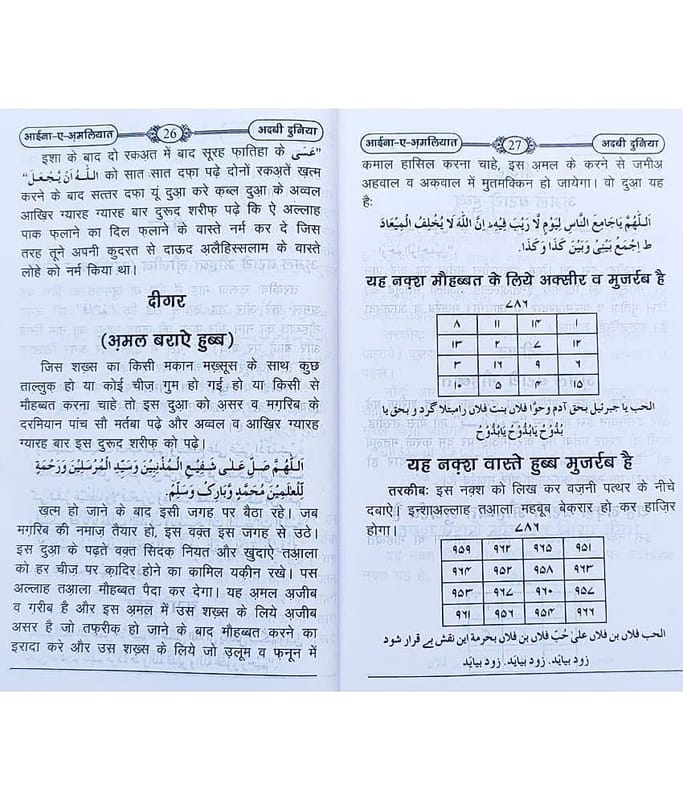 आईना-ए-अ़मलियात 26 अदबी दुनिया
इशा के बाद दो रकअ़त में बाद सूरह फ़ातिहा के "عَسَى
اللّٰهُ اَنْ يَّجْعَلَ" को सात सात दफ़ा पढ़े दोनों रकअ़तें ख़त्म
करने के बाद सत्तर दफ़ा यूं दुआ़ करे क़ब्ल दुआ़ के अव्वल
आख़िर ग्यारह ग्यारह बार दुरूद शरीफ़ पढ़े कि ऐ अल्लाह
पाक फ़लाने का दिल फ़लाने के वास्ते नर्म कर दे जिस
तरह तूने अपनी कुदरत से दाऊद अलैहिस्सलाम के वास्ते
लोहे को नर्म किया था।
दीगर
(अ़मल बराऐ हुब्ब)
जिस शख़्स का किसी मकान मख़्सूस के साथ कुछ
ताल्लुक हो या कोई चीज़ गुम हो गई हो या किसी से
मौहब्बत करना चाहे तो इस दुआ़ को अ़सर व मग़रिब के
दरमियान पांच सौ मर्तबा पढ़े और अव्वल व आख़िर ग्यारह
ग्यारह बार इस दुरूद शरीफ़ को पढ़े।
اَللّٰهُمَّ صَلِّ عَلٰى شَفِيْعِ الْمُذْنِبِيْنَ وَسَيِّدِ الْمُرْسَلِيْنَ وَرَحْمَةٍ
لِّلْعٰلَمِيْنَ مُحَمَّدٍ وَّبَارِكْ وَسَلِّمْ.
ख़त्म हो जाने के बाद इसी जगह पर बैठा रहे। जब
मग़रिब की नमाज़ तैयार हो, इस वक़्त इस जगह से उठे।
इस दुआ़ के पढ़ते वक़्त सिदक़ नियत और खुदाऐ तआ़ला
को हर चीज़ पर क़ादिर होने का कामिल यक़ीन रखे। पस
अल्लाह तआ़ला मौहब्बत पैदा कर देगा। यह अ़मल अ़जीब
व ग़रीब है और इस अ़मल में उस शख़्स के लिये अ़जीब
असर है जो तफ़रीक़ हो जाने के बाद मौहब्बत करने का
इरादा करे और उस शख़्स के लिये जो उ़लूम व फ़नून में
आईना-ए-अ़मलियात 27 अदबी दुनिया
कमाल हासिल करना चाहे, इस अमल के करने से जमीअ़
अहवाल व अक़वाल में मुतमक्किन हो जायेगा। वो दुआ़ यह
है:
اَللّٰهُمَّ يَاجَامِعَ النَّاسِ لِيَوْمٍ لَّا رَيْبَ فِيْهِ اِنَّ اللّٰهَ لَا يُخْلِفُ الْمِيْعَادَ
ط اِجْمَعْ بَيْنِىْ وَبَيْنَ كَذَا وَكَذَا.
यह नक़्श मौहब्बत के लिये अक्सीर व मुजर्रब है
٧٨٦
٨ ١١ ١٤ ١
١٣ ٢ ٧ ١٢
٣ ١٦ ٩ ٦
١٠ ٥ ٤ ١٥
الحب یا جبرئیل بحق آدم وحوّا فلاں بنت فلاں رامبتلا گردد و بحق یا
بُدُّوْحُ يَابُدُّوْحُ يَابُدُّوْحُ
यह नक़्श वास्ते हुब्ब मुजर्रब है
तरकीब: इस नक़्श को लिख कर वज़नी पत्थर के नीचे
दबाऐ। इन्शाअल्लाह तआ़ला महबूब बेक़रार हो कर हाज़िर
होगा।
٧٨٦
٩٥٩ ٩٦٢ ٩٦٥ ٩٥١
٩٦٤ ٩٥٢ ٩٥٨ ٩٦٣
٩٥٣ ٩٦٧ ٩٦٠ ٩٥٧
٩٦١ ٩٥٦ ٩٥٤ ٩٦٦
الحب فلاں بن فلاں علیٰ حُبّ فلاں بن فلاں بحرمة این نقش بے قرار شود
زود بیاید. زود بیاید. زود بیاید